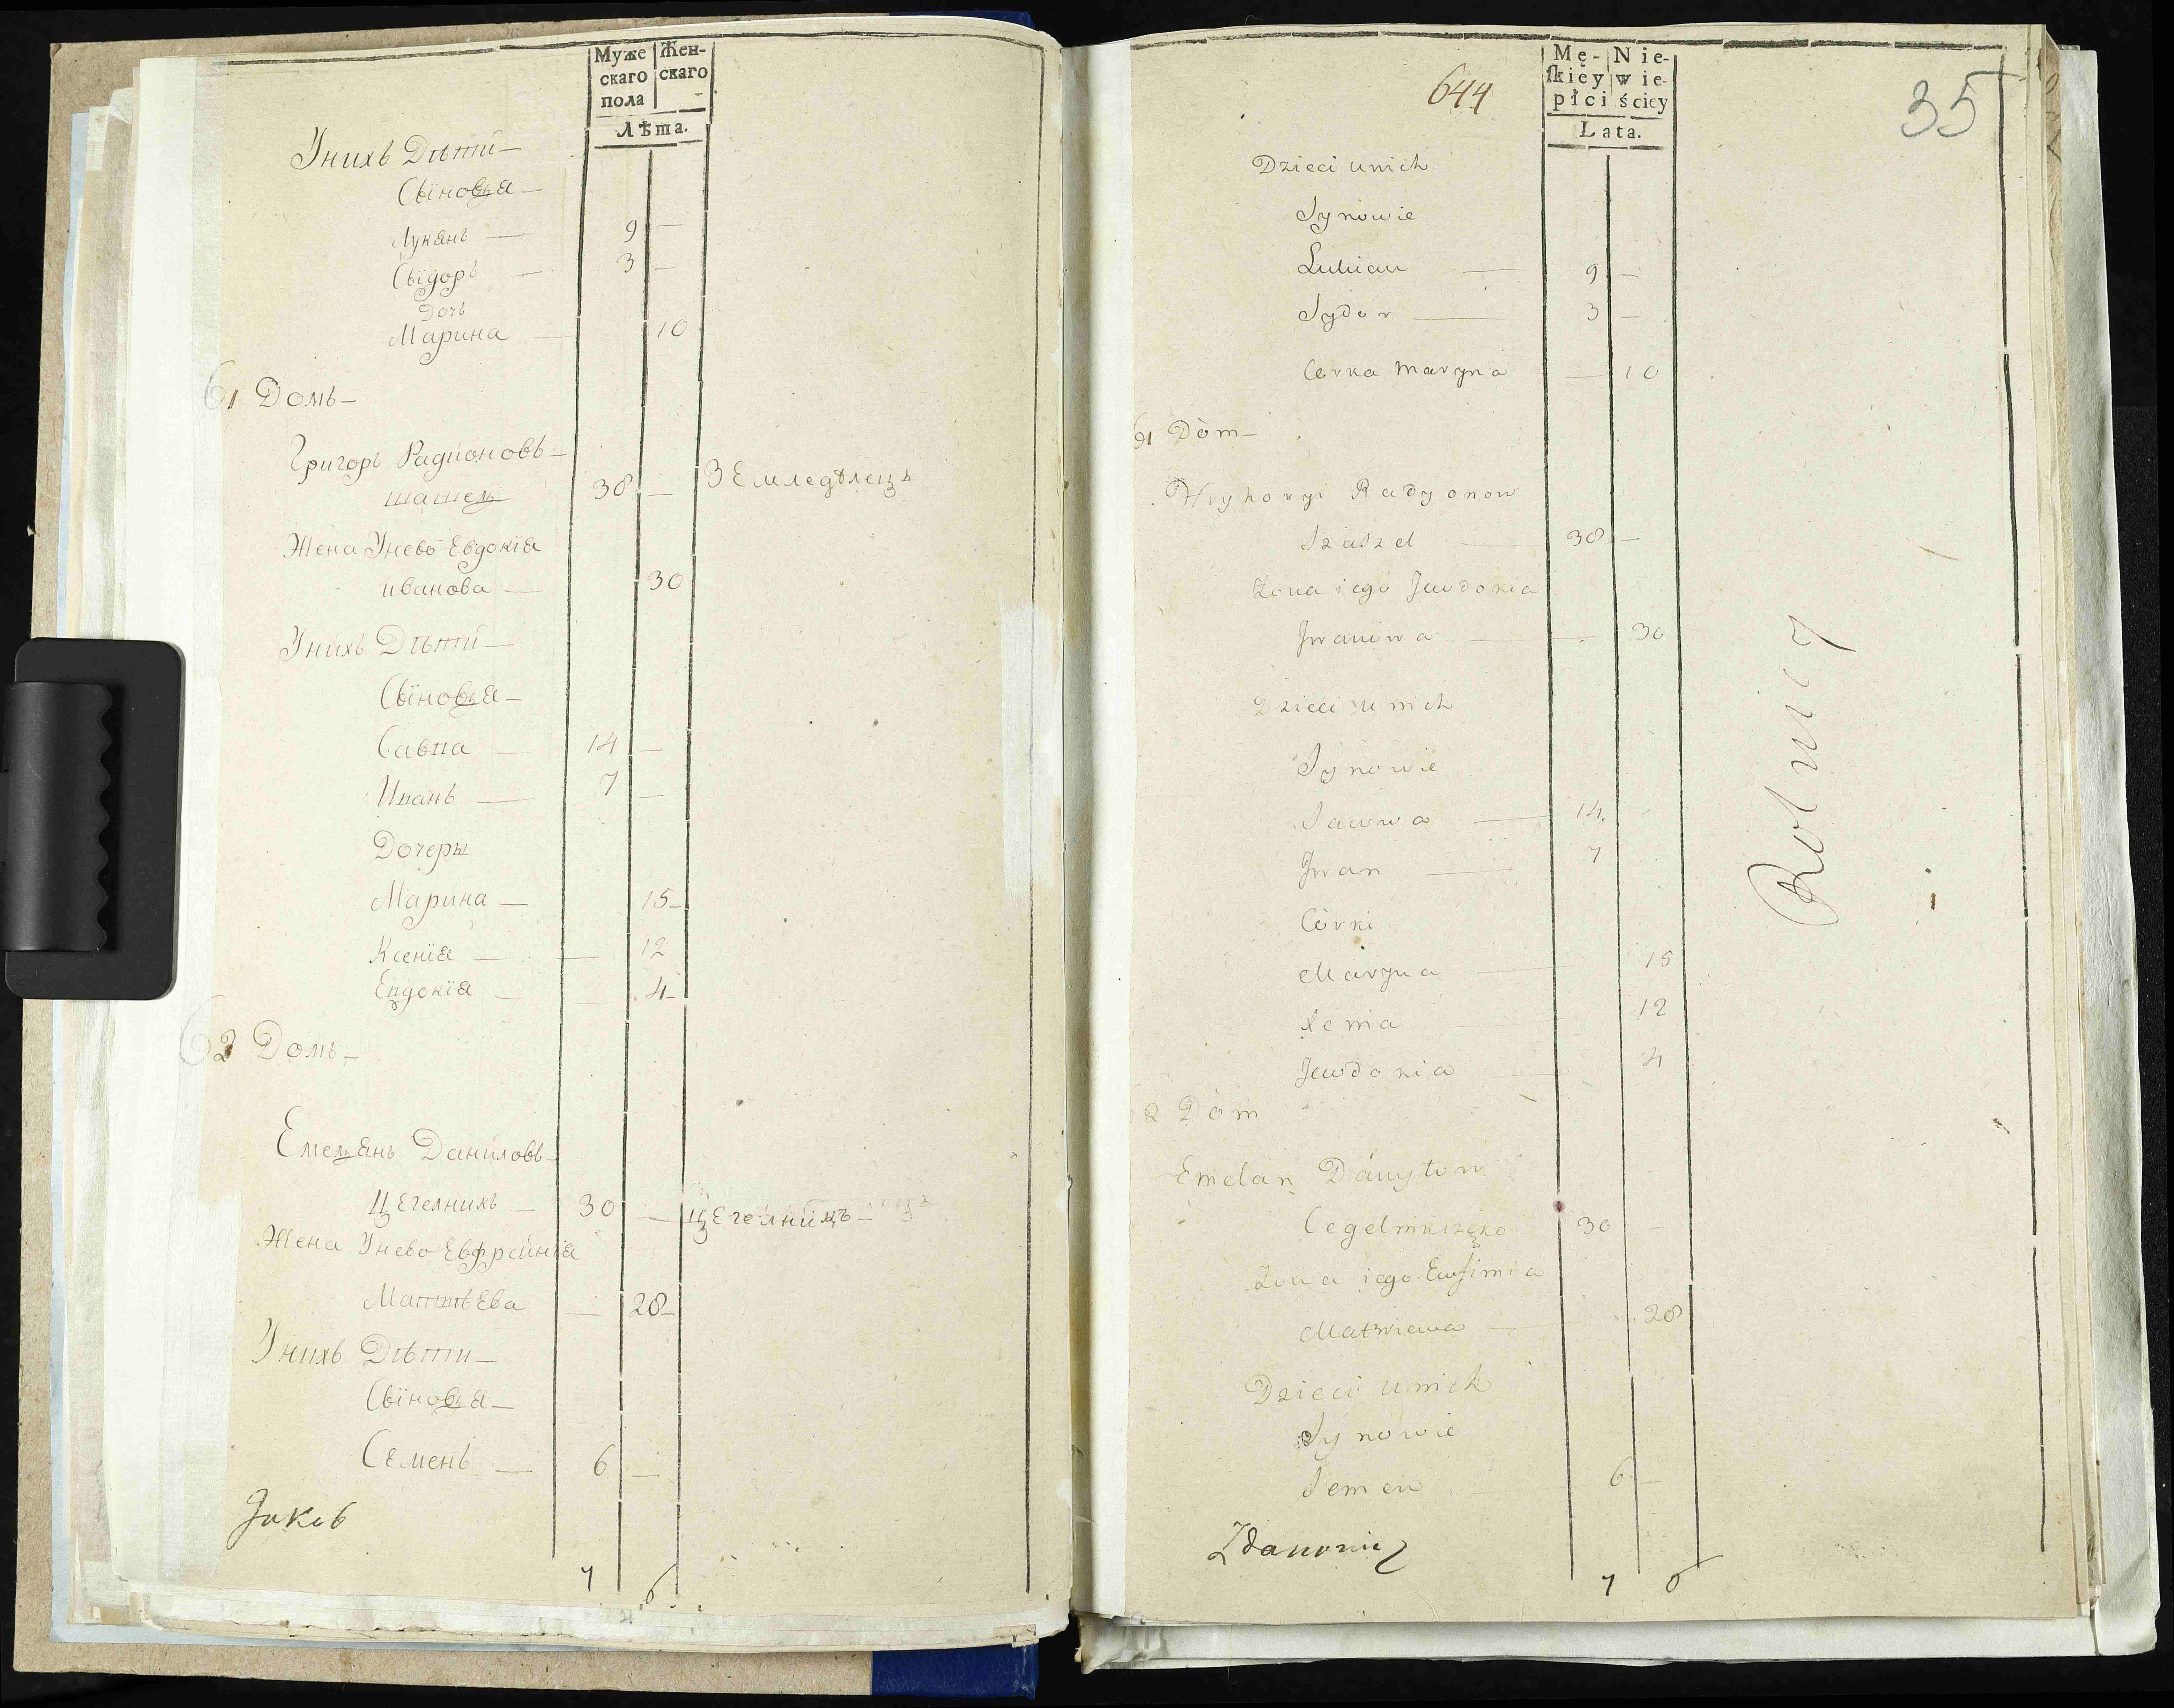 Муже Жен-
скаго скаго
пола
Лѣта.
Унихъ Дѣти —
Сыновья —
Лукянъ — 9 —
Сыдоръ — 3 —
Дочь
Марина — 10
61 Домъ —
Григорь Радионовъ —
шашель 38 — Земледѣлецъ
Жена Унево Евдокія
иванова — 30
Унихъ Дѣти —
Сыновья —
Савва — 14 —
Иванъ — 7 —
Дочеры
Марина — 15 —
Ксенія — — 12
Евдокія — — 4 —
62 Домъ —
Емельянъ Даниловъ
Цегелникъ — 30 — Цегелникъ —
Жена Унево Евфрейнія
Матѣева — 28 —
Унихъ Дѣти —
Сыновья —
Семенъ — 6 —
Jakob
7 6
644
35
Mę- Nie-
ſkiey wie-
płci ściey
Lata.
Dzieci unich
Synowie
Lukian — 9 —
Sydor — 3 —
Corka Maryna — 10
61 Dóm —
Hryhoryi Radyonow
Szaszel — 38 —
Żona iego Jewdokia
Iwanowa — — 30
Dzieci unich
Synowie
Sawwa — 14
Iwan — 7
Córki
Maryna — 15
Xenia — 12
Jewdokia — 4
2 Dóm
Emelan Danyłow
30 —
Żona iego Eufimia
Matwiewa — 28
Dzieci unich
Synowie
Semen 6 —
Zdanowicz
7 6
Rolnicy